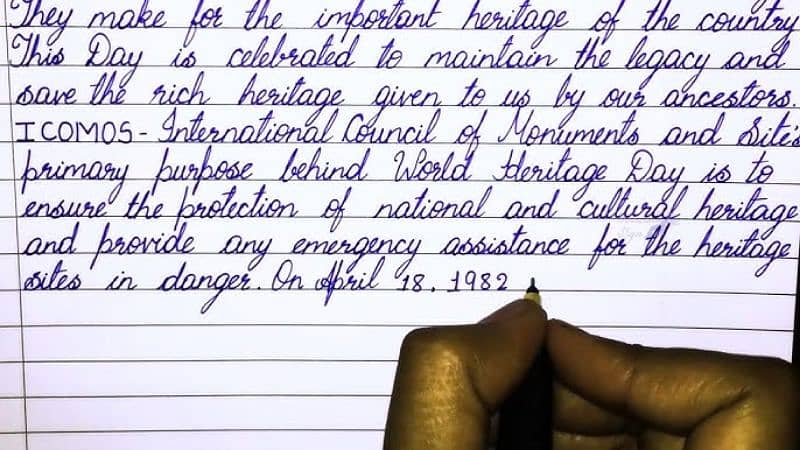 They make for the important heritage of the country
This Day is celebrated to maintain the legacy and
save the rich heritage given to us by our ancestors.
ICOMOS - International Council of Monuments and Site's
primary purpose behind World Heritage Day is to
ensure the protection of national and cultural heritage
and provide any emergency assistance for the heritage
sites in danger. On April 18, 1982